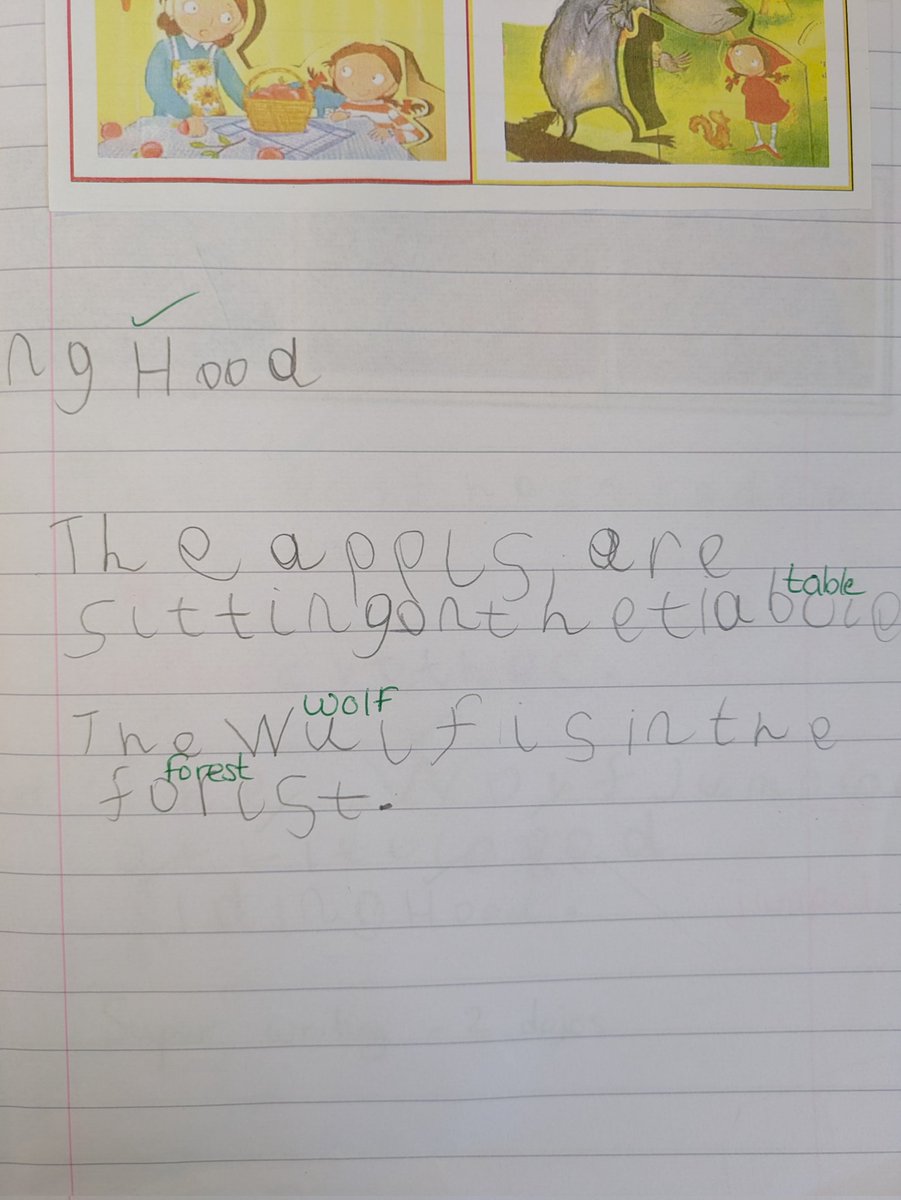 ng Hood
The appls are
sitting on the tabole
table
The Wulf is in the
wolf
forist.
forest